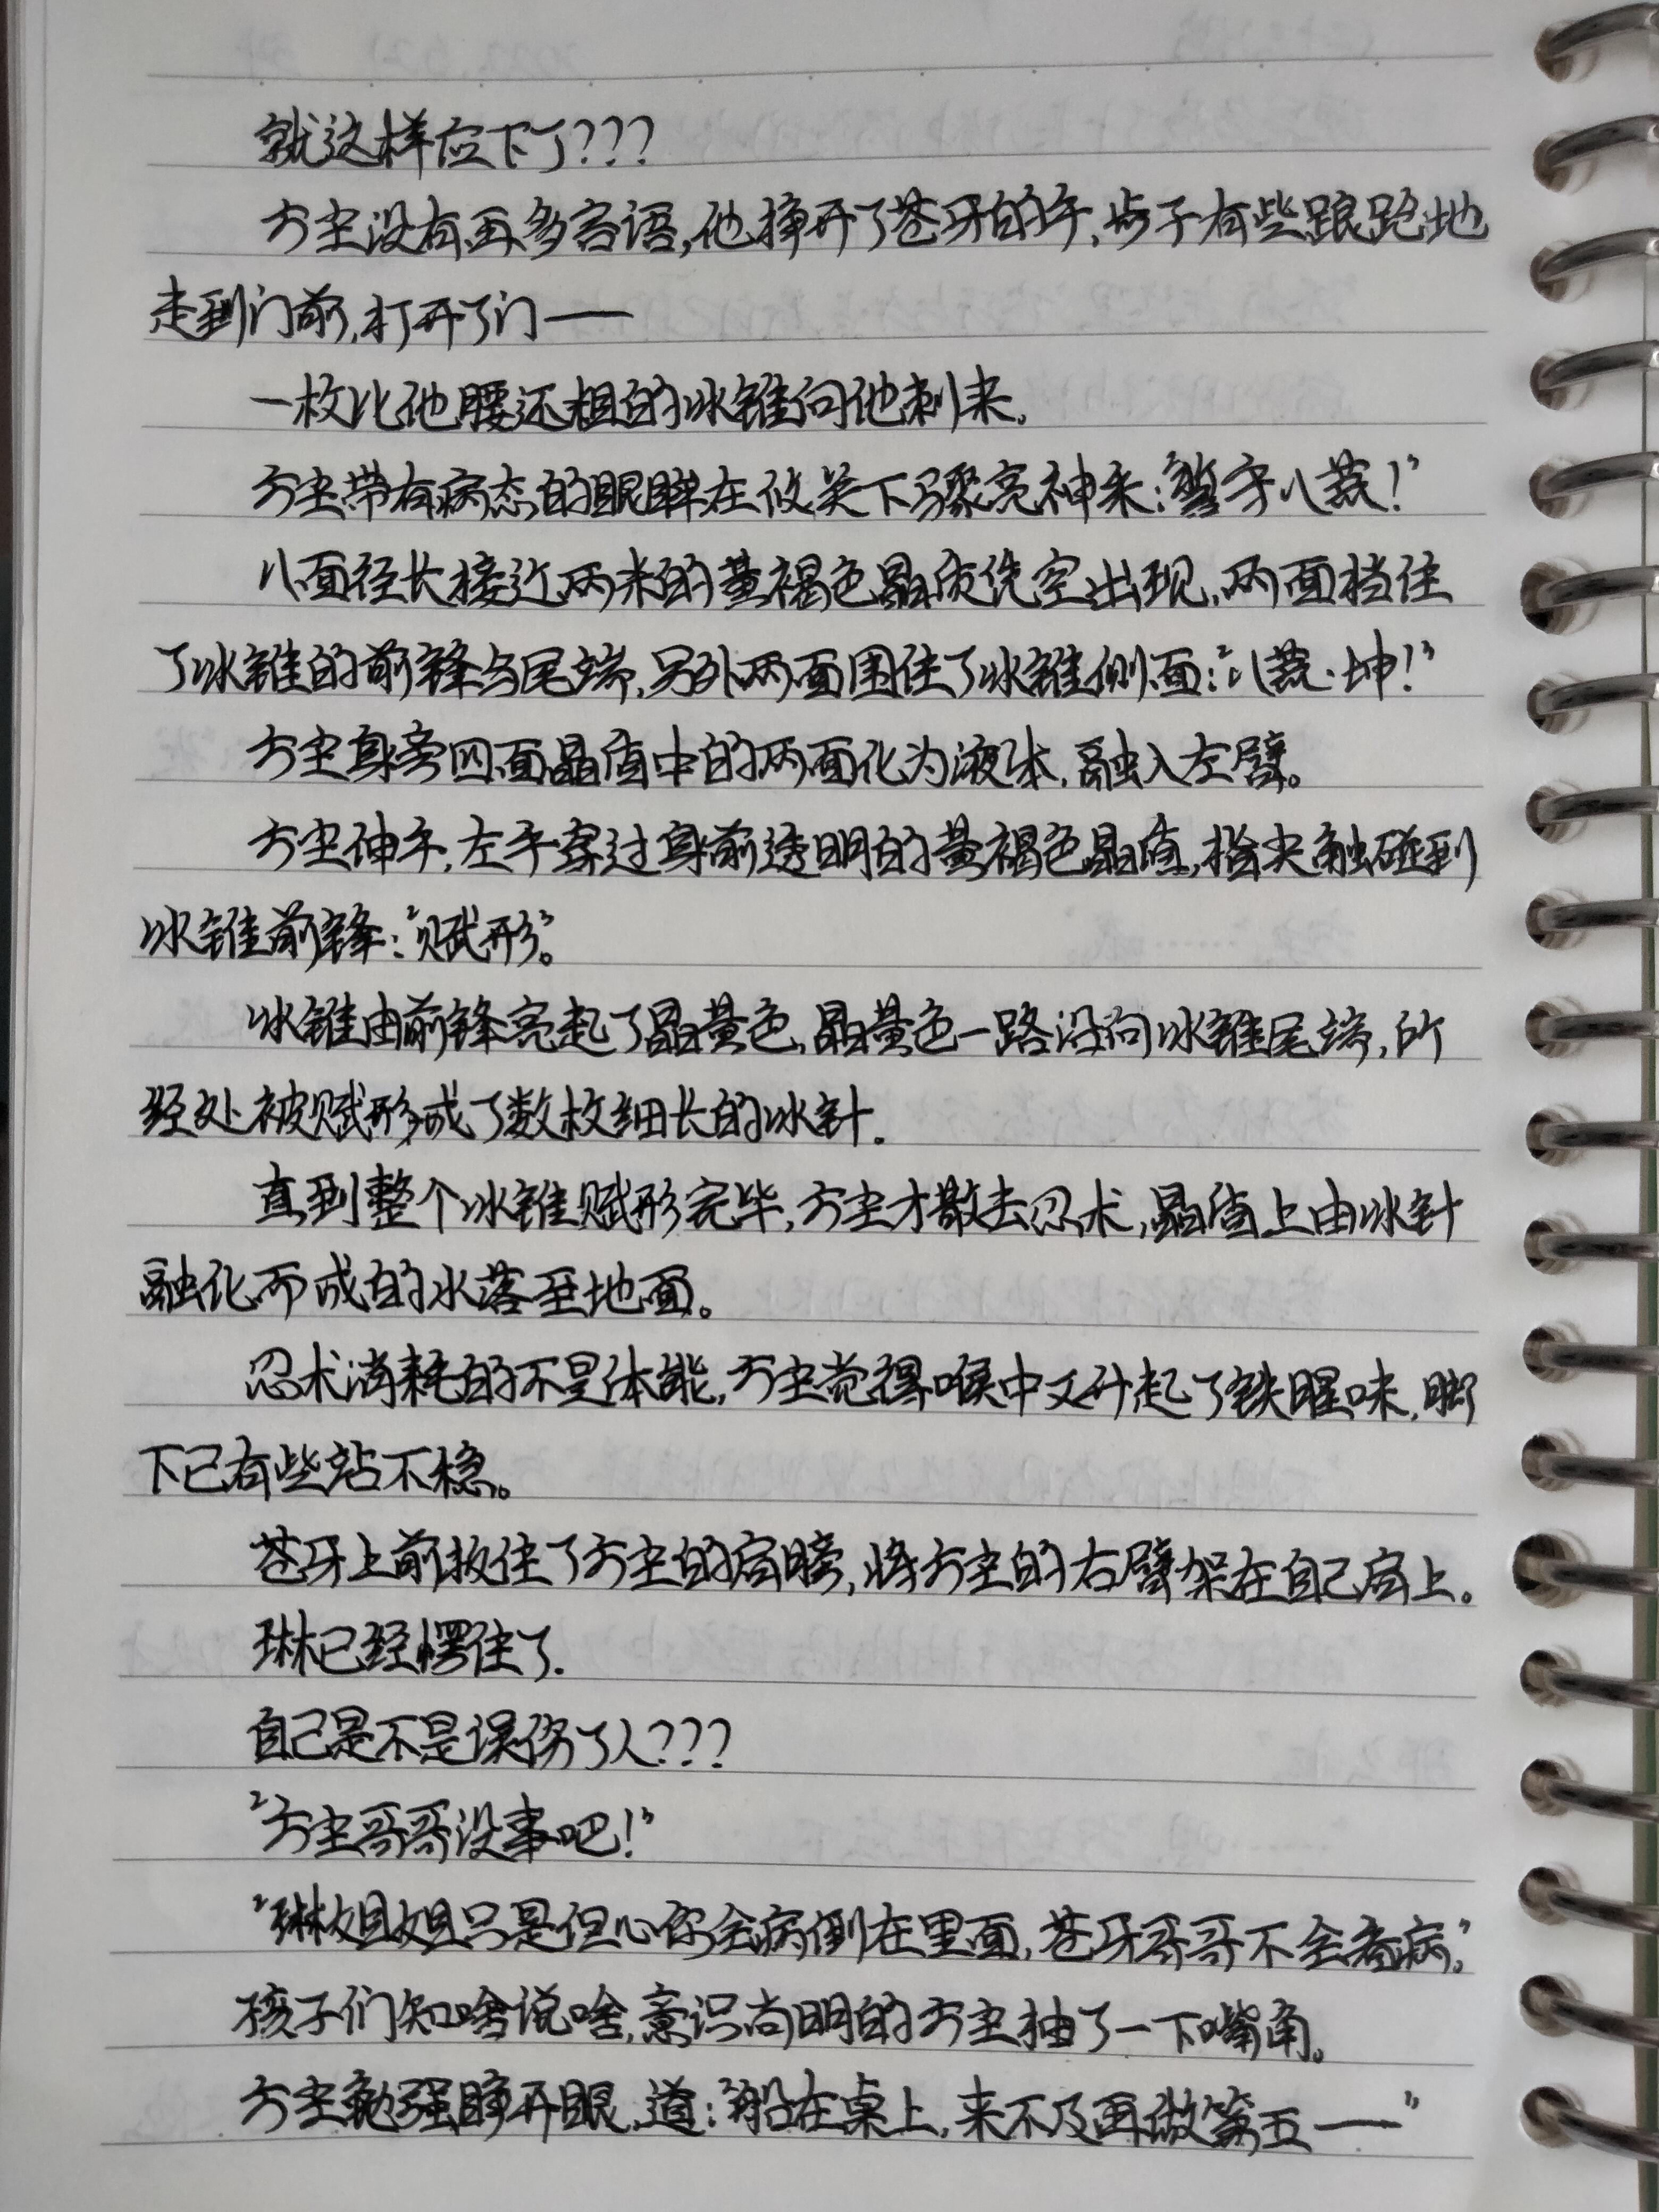 就这样应下了???
方尘没有再多言语,他挣开了苍牙的手,步子有些踉跄地
走到门前,打开了门——
一枚比他腰还粗的冰锥向他刺来。
方尘带有病态的眼眸在攸关下骤亮神来:“誓守八荒!”
八面径长接近两米的黄褐色晶质凭空出现,两面挡住
了冰锥的前锋与尾端,另外两面围住了冰锥侧面:“八荒·坤!”
方尘身旁四面晶值中的两面化为液体,融入左臂。
方尘伸手,左手穿过身前透明的黄褐色晶值,指尖触碰到
冰锥前锋:“赋形”。
冰锥由前锋亮起了晶黄色,晶黄色一路沿向冰锥尾端,所
经处被赋形成了数枚细长的冰针。
直到整个冰锥赋形完毕,方尘才散去忍术,晶值上由冰针
融化而成的水落至地面。
忍术消耗的不是体能,方尘觉得喉中又升起了铁腥味,脚
下已有些站不稳。
苍牙上前扳住了方尘的肩膀,将方尘的右臂架在自己肩上。
琳已经愣住了.
自己是不是误伤了人???
“方尘哥哥没事吧!”
“琳姐姐只是但心你会病倒在里面,苍牙哥哥不会看病。”
孩子们知啥说啥,意识尚明的方尘抽了一下嘴角。
方尘勉强睁开眼,道:“船在桌上,来不及再做第五——”